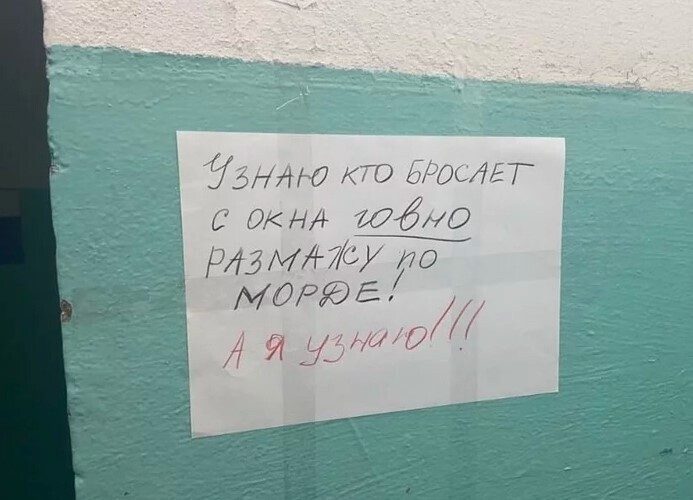 УЗНАЮ КТО БРОСАЕТ
С ОКНА говно
РАЗМАЖУ ПО
МОРДЕ!
А Я узнаю!!!